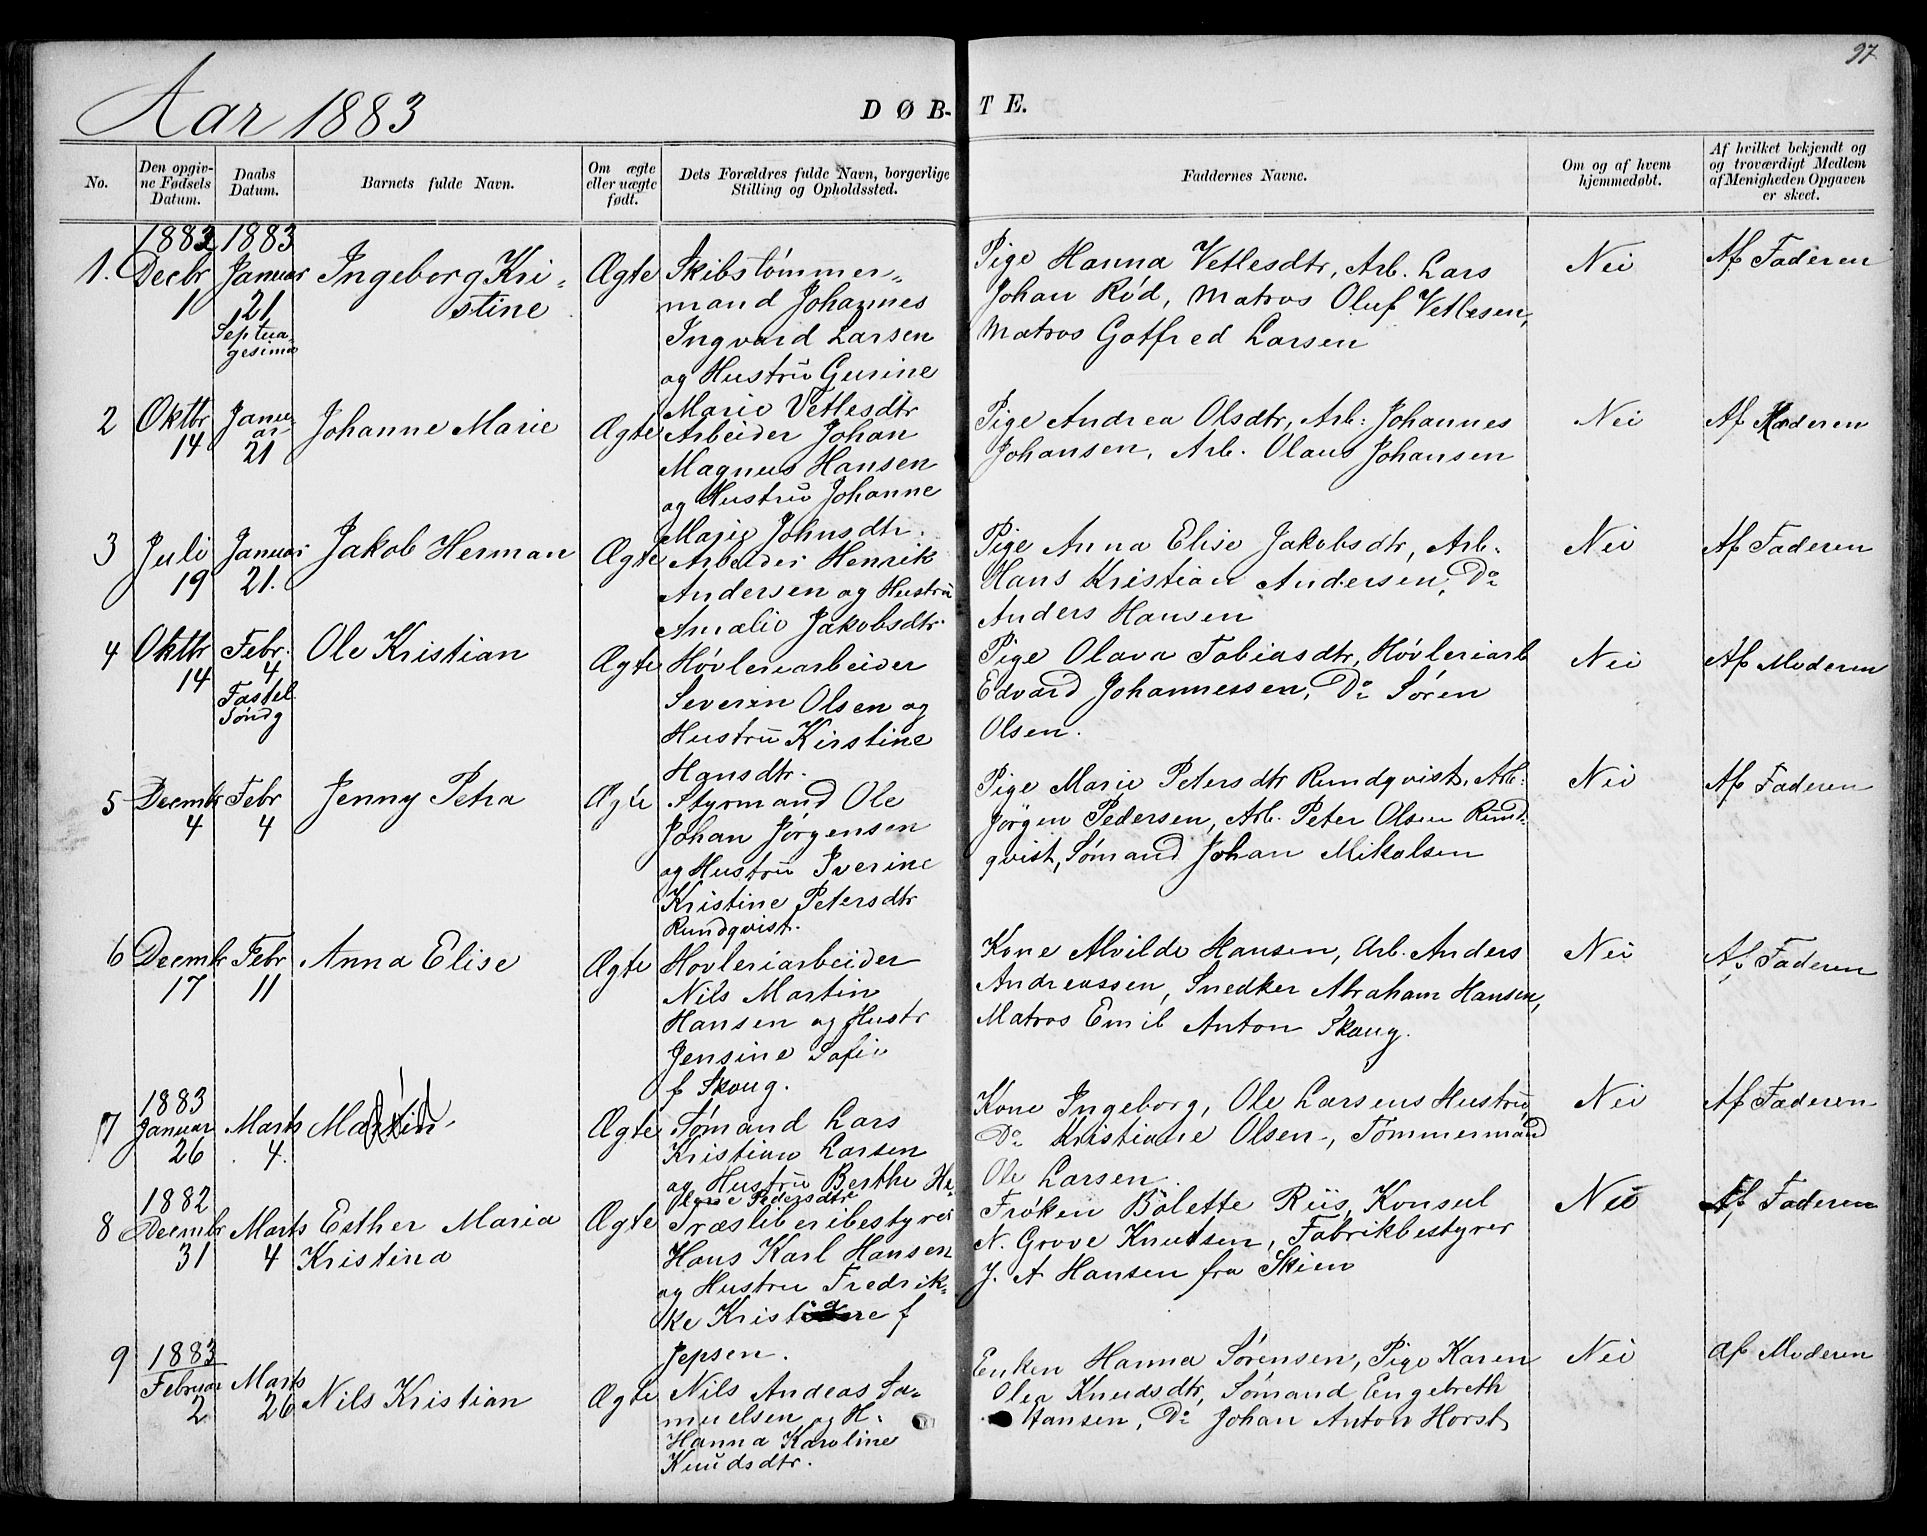 97
Aar 1883
DØB-TE.
No.
Den opgivne Fødsels Datum.
Daabs Datum.
Barnets fulde Navn.
Om ægte eller uægte født.
Dets Forældres fulde Navn, borgerlige Stilling og Opholdssted.
Faddernes Navne.
Om og af hvem hjemmedøbt.
Af hvilket bekjendt og og troværdigt Medlem af Menigheden Opgaven er skeet.
1.
1882
Decbr
1
1883
Januar
21
Septua-
gesima
Ingeborg Kri-
stine
Ægte
Skibstømmer-
mand Johannes
Ingvard Larsen
og Hustru Gurine
Marie Vetlesdtr
Pige Hanna Vetlesdtr, Arb. Lars
Johan Rød, Matros Oluf Vetlesen,
Matros Gotfred Larsen
Nei
Af Faderen
2
Oktbr
14
Janu-
ar
21
Johanne Marie
Ægte
Arbeider Johan
Magnus Hansen
og Hustru Johanne
Marie Johnsdtr.
Pige Andrea Olsdtr, Arb: Johannes
Johansen, Arb. Olaus Johansen
Nei
Af Moderen
3
Juli
19
Januar
21.
Jakob Herman
Ægte
Arbeider Henrik
Andersen og Hustru
Amalie Jakobsdtr.
Pige Anna Elise Jakobsdtr, Arb.
Hans Kristian Andersen, Do
Anders Hansen
Nei
Af Faderen
4
Oktbr
14
Febr.
4
Fastel
Søndg
Ole Kristian
Ægte
Høvleriarbeider
Severin Olsen og
Hustru Kirstine
Hansdtr.
Pige Olava Tobiasdtr, Høvleriarb
Edvard Johannessen, Do Søren
Olsen.
Nei
Af Moderen
5
Decmbr
4
Febr
4
Jenny Petra
Ægte
Styrmand Ole
Johan Jørgensen
og Hustru Iverine
Kristine Petersdtr
Rundqvist.
Pige Marie Petersdtr Rundqvist, Arb:
Jørgen Pedersen, Arb. Peter Olsen Rund-
qvist, Sømand Johan Mikalsen
Nei
Af Faderen
6
Decmbr
17
Febr
11
Anna Elise
Ægte
Høvleriarbeider
Nils Martin
Hansen og Hustr
Jensine Sofie
f Skoug.
Kone Alvilde Hansen, Arb. Anders
Andreassen, Snedker Abraham Hansen,
Matros Emil Anton Skoug.
Nei
Af Faderen
7
1883
Januar
26
Marts
4.
Ægte
Sømand Lars
Kristian Larsen
og Hustru Berthe He-
Pedersdtr
Kone Ingeborg, Ole Larsens Hustru,
Do Kristiane Olsen, Tømmermand
Ole Larsen.
Nei
Af Faderen
8
1882
Decmbr
31
Marts
4
Esther Maria
Kristina
Ægte
Træsliberibestyrer
Hans Karl Hansen
og Hustru Fredrik-
ke f
Jepsen.
Frøken Bolette Riis, Konsul
N. Grove Knutsen, Fabrikbestyrer
J. A Hansen fra Skien
Nei
Af Faderen
9
1883
Februar
2
Marts
26
Nils Kristian
Ægte
Nils Andeas Sa-
muelsen og H.
Hanna Karoline
Knudsdtr.
Enken Hanna Sørensen, Pige Karen
Olea Knudsdtr, Sømand Engebreth
Hansen, Do Johan Anton Horst
Nei
Af Moderen